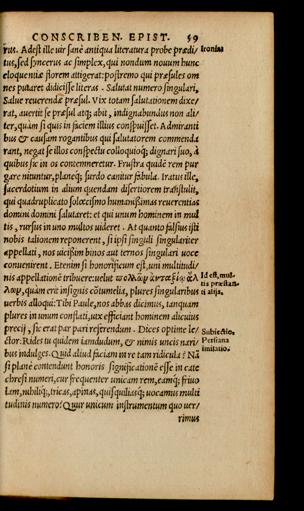 CONSCRIBEN. EPIST. 59
rus. Adest ille uir sanè antiqua literatura probe prædi/
tus, sed syncerus ac simplex, qui nondum nouum hunc
eloquentiæ florem attigerat: postremo qui præsules om
nes putaret didicisse literas. Salutat numero singulari,
Salue reuerende præsul. Vix totam salutationem dixe/
rat, auertit se præsul atq; abit, indignabundus non ali/
ter, quàm si quis in faciem illius conspuisset. Admiranti
bus & causam rogantibus qui salutatorem commenda
rant, negat se illos conspectu colloquioq; dignari suo, à
quibus sic in os contemneretur. Frustra quidē rem pur
gare nituntur, planeq; surdo canitur fabula. Iratus ille,
sacerdotium in alium quendam disertiorem transtulit,
qui quadruplicato solœcismo humanissimas reuerentias
domini domini salutaret: et qui unum hominem in mul
tis, rursus in uno multos uideret. At quanto falsius isti
nobis talionem reponerent, si ipsi singuli singulariter
appellati, nos uicissim binos aut ternos singulari uoce
conuenirent. Etenim si honorificum est, uni multitudi/
nis appellationē tribuere: uelut πολλῶμ ἀντάξιος ἄλ
λωμ, quàm erit insignis cōtumelia, plures singularibus
uerbis alloqui: Tibi Paule, nos abbas dicimus, tanquam
plures in unum conflati, uix efficiant hominem alicuius
precij, sic erat par pari referendum. Dices optime le/
ctor: Rides tu quidem iamdudum, & nimis uncis nari/
bus indulges. Quid aliud faciam in re tam ridicula? Nā
si planè contendunt honoris significationē esse in cate
chresi numeri, cur frequenter unicam rem, eamq; friuo
lam, nihiliq;, tricas, apinas, quisquiliasq; uocamus multi
tudinis numero? Quur unicum instrumentum quo uer/
rimus
Ironiωs
Id est, mul-
tis præstan-
ti alijs.
Subiectio.
Persiana
imitatio.